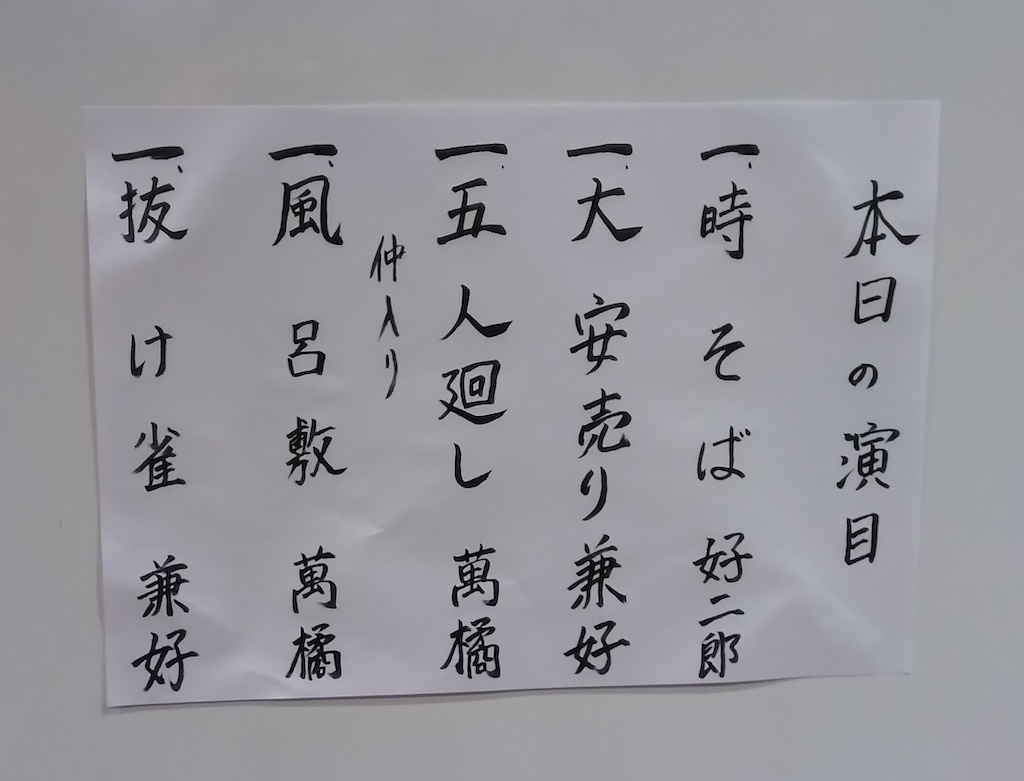 本日の演目
一、時そば 好二郎
一、大安売り 兼好
一、五人廻し 萬橘
仲入り
一、風呂敷 萬橘
一、抜け雀 兼好